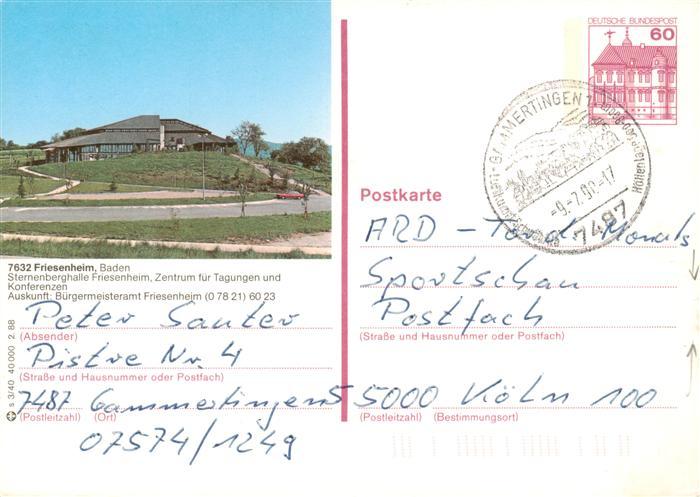 DEUTSCHE BUNDESPOST
60
GAMMERTINGEN 1
-9.-7.90.-17
7487
Postkarte
7632 Friesenheim, Baden
Sternenberghalle Friesenheim, Zentrum für Tagungen und
Konferenzen
Auskunft: Bürgermeisteramt Friesenheim (0 78 21) 60 23
Peter Sauter
(Absender)
Pistre Nr. 4
(Straße und Hausnummer oder Postfach)
7487 Gammertingen 5
(Postleitzahl) (Ort)
07574/1249
s 3/40 40 000 2.88
ARD - Tor d. Monats
Sportschau
Postfach
(Straße und Hausnummer oder Postfach)
5000 Köln 100
(Postleitzahl) (Bestimmungsort)